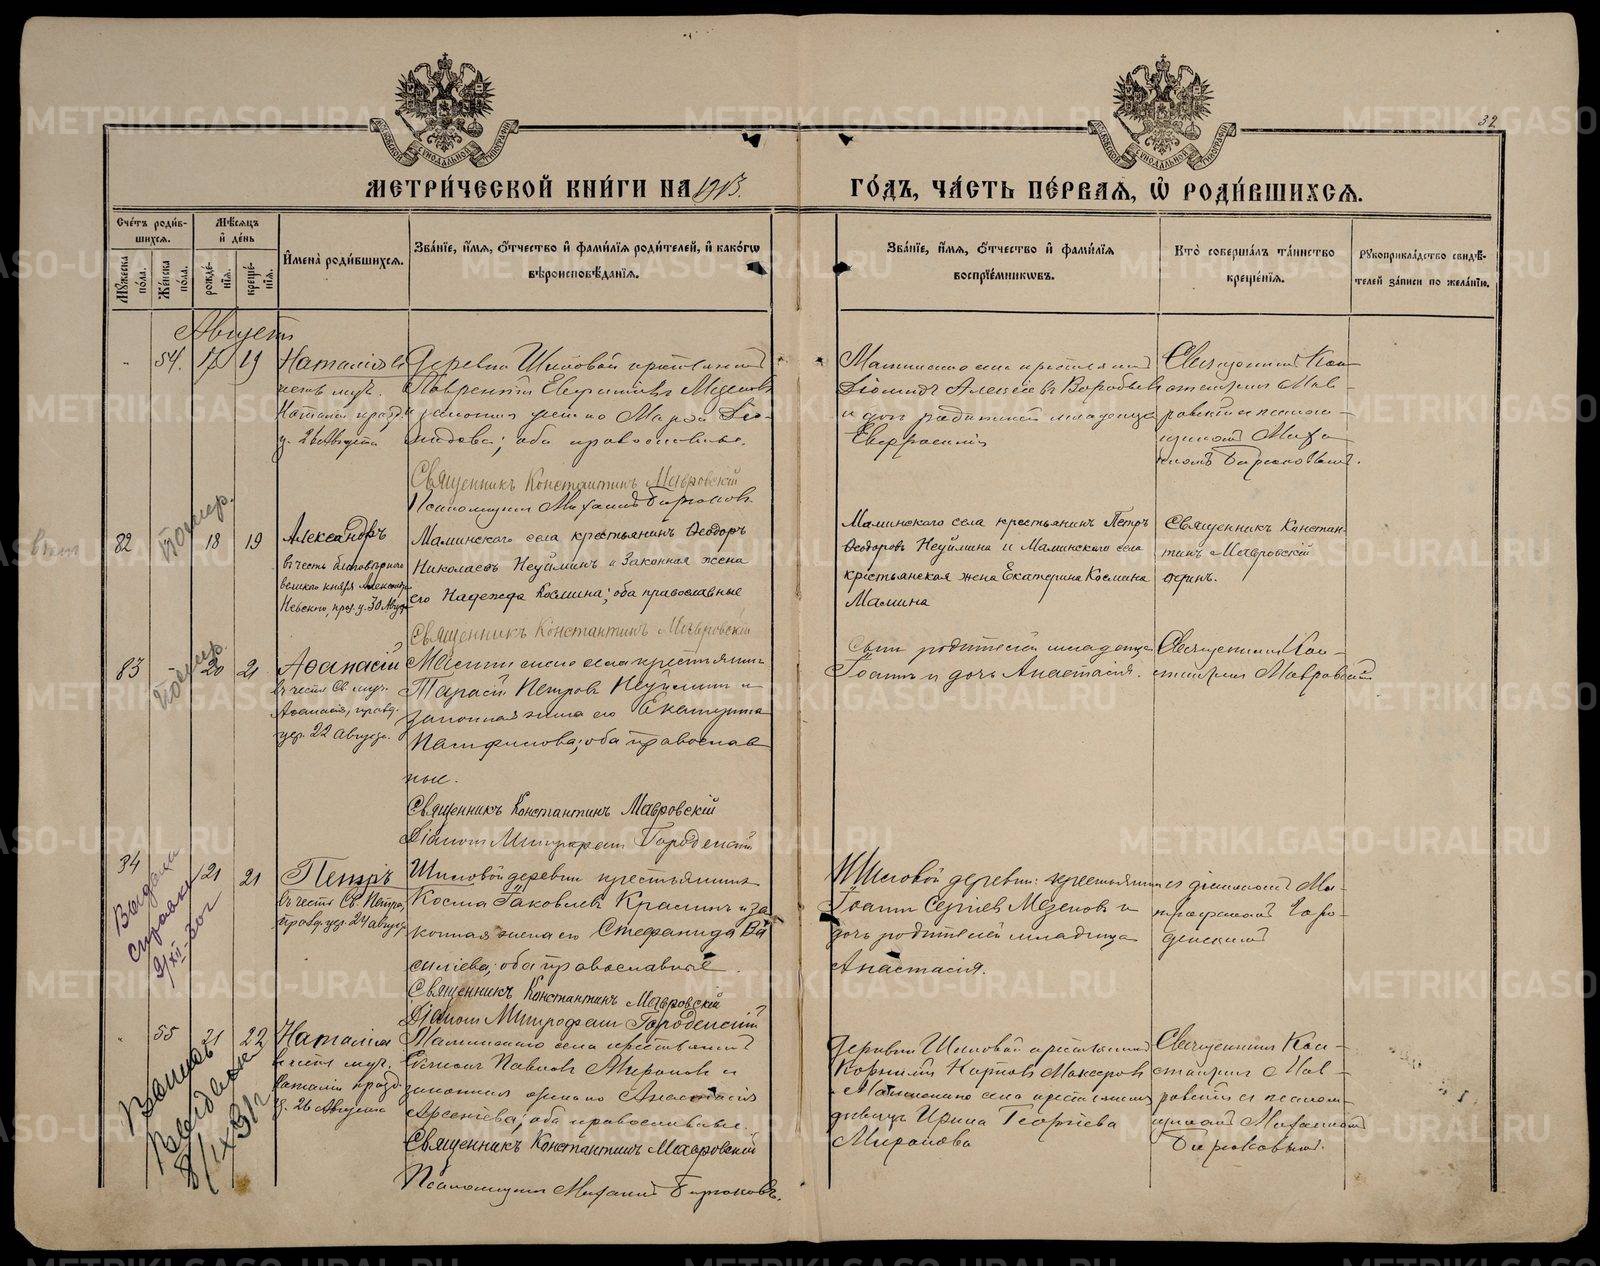 32
МОСКОВСКОЙ СУНОДАЛЬНОЙ ТИПОГРАФІИ
МОСКОВСКОЙ СУНОДАЛЬНОЙ ТИПОГРАФІИ
МЕТРИ́ЧЕСКОЙ КНИ́ГИ НА 1913. ГО́ДЪ, ЧА́СТЬ ПЕ́РВАЯ, Ѡ҆ РОДИ́ВШИХСЯ.
Сче́тъ роди́в-
шихся.
Мꙋ́жеска по́ла.
Же́нска по́ла.
Мѣ́сяцъ
и҆ де́нь
рожде́-
нія.
креще́-
нія.
И҆мена̀ роди́вшихся.
Зва́ніе, и҆́мя, ѻ҆́тчество и҆ фами́лія роди́телей, и҆ како́гѡ
вѣроисповѣ́данія.
Зва́ніе, и҆́мя, ѻ҆́тчество и҆ фами́лія
воспріе́мниковъ.
Кто̀ соверша́лъ та́инство
креще́нія.
Рꙋкоприкла́дство свидѣ́-
телей за́писи по жела́нію.
Августъ
54. 17 19
Наталія въ
честь муч.
Наталіи празд.
ц. 26 Августа
Деревни Шиловой крестьянинъ
Лаврентій Евѳиміевъ Мезеновъ
и законная жена его Марія Діо-
мидова; оба православные.
Священникъ Константинъ Мавровскій
Псаломщикъ Михаилъ Бирюковъ
Маминскаго села крестьянинъ
Діомидъ Алексѣевъ Воробьевъ
и дочь родителей младенца
Евфросинія
Священникъ Кон-
стантинъ Мав-
ровскій съ псалом-
щикомъ Миха-
иломъ Бирюковымъ.
82 18 19
Помер.
Александръ
въ честь благовѣрнаго
великаго князя Александра
Невскаго, праз. ц. 30 Август
Маминскаго села крестьянинъ Ѳеодоръ
Николаевъ Неуйминъ и законная жена
его Надежда Космина; оба православные
Священникъ Константинъ Мавровскій
Маминскаго села крестьянинъ Петръ
Ѳеодоровъ Неуйминъ и Маминскаго села
крестьянская жена Екатерина Космина
Мамина
Священникъ Констан-
тинъ Мавровскій
одинъ.
83 20 21
Помер.
Аѳанасій
въ честь Св. муч.
Аѳанасія, празд.
цер. 22 август.
Маминскаго села крестьянинъ
Тарасій Петровъ Неуйминъ и
законная жена его Екатерина
Памфилова; оба православ
ные.
Священникъ Константинъ Мавровскій
Діаконъ Митрофанъ Городенскій
Сынъ родителей младенца
Іоаннъ и дочь Анастасія.
Священникъ Кон-
стантинъ Мавровскій
34 21 21
Выдана
справка
9/XII-20 г
Петръ
въ честь Св. Петра,
празд. цер. 24 август.
Шиловой деревни крестьянинъ
Косма Іаковлевъ Красинъ и за
конная жена его Стефанида Ва
силіева; оба православные
Священникъ Константинъ Мавровскій
Діаконъ Митрофанъ Городенскій
Шиловой деревни крестьянинъ
Іоаннъ Сергіевъ Мезеновъ и
дочь родителей младенца
Анастасія.
съ діакономъ Ми-
трофаномъ Горо-
денскимъ
55 21 22
Наталія
въ честь муч.
Наталіи празд.
ц. 26 Августа
Маминскаго села крестьянинъ
Павловъ Мироновъ и
законная жена его Анастасія
Арсеніева; оба православные.
Священникъ Константинъ Мавровскій
Псаломщикъ Михаилъ Бирюковъ.
Деревни Шиловой крестьянинъ
Корнилій Карповъ Макаровъ
Маминскаго села крестьянская
дѣвица Ирина Георгіева
Миронова
Священникъ Кон-
стантинъ Мав-
ровскій съ псалом-
щикомъ Михаиломъ
Бирюковымъ.
8/IX 31 г